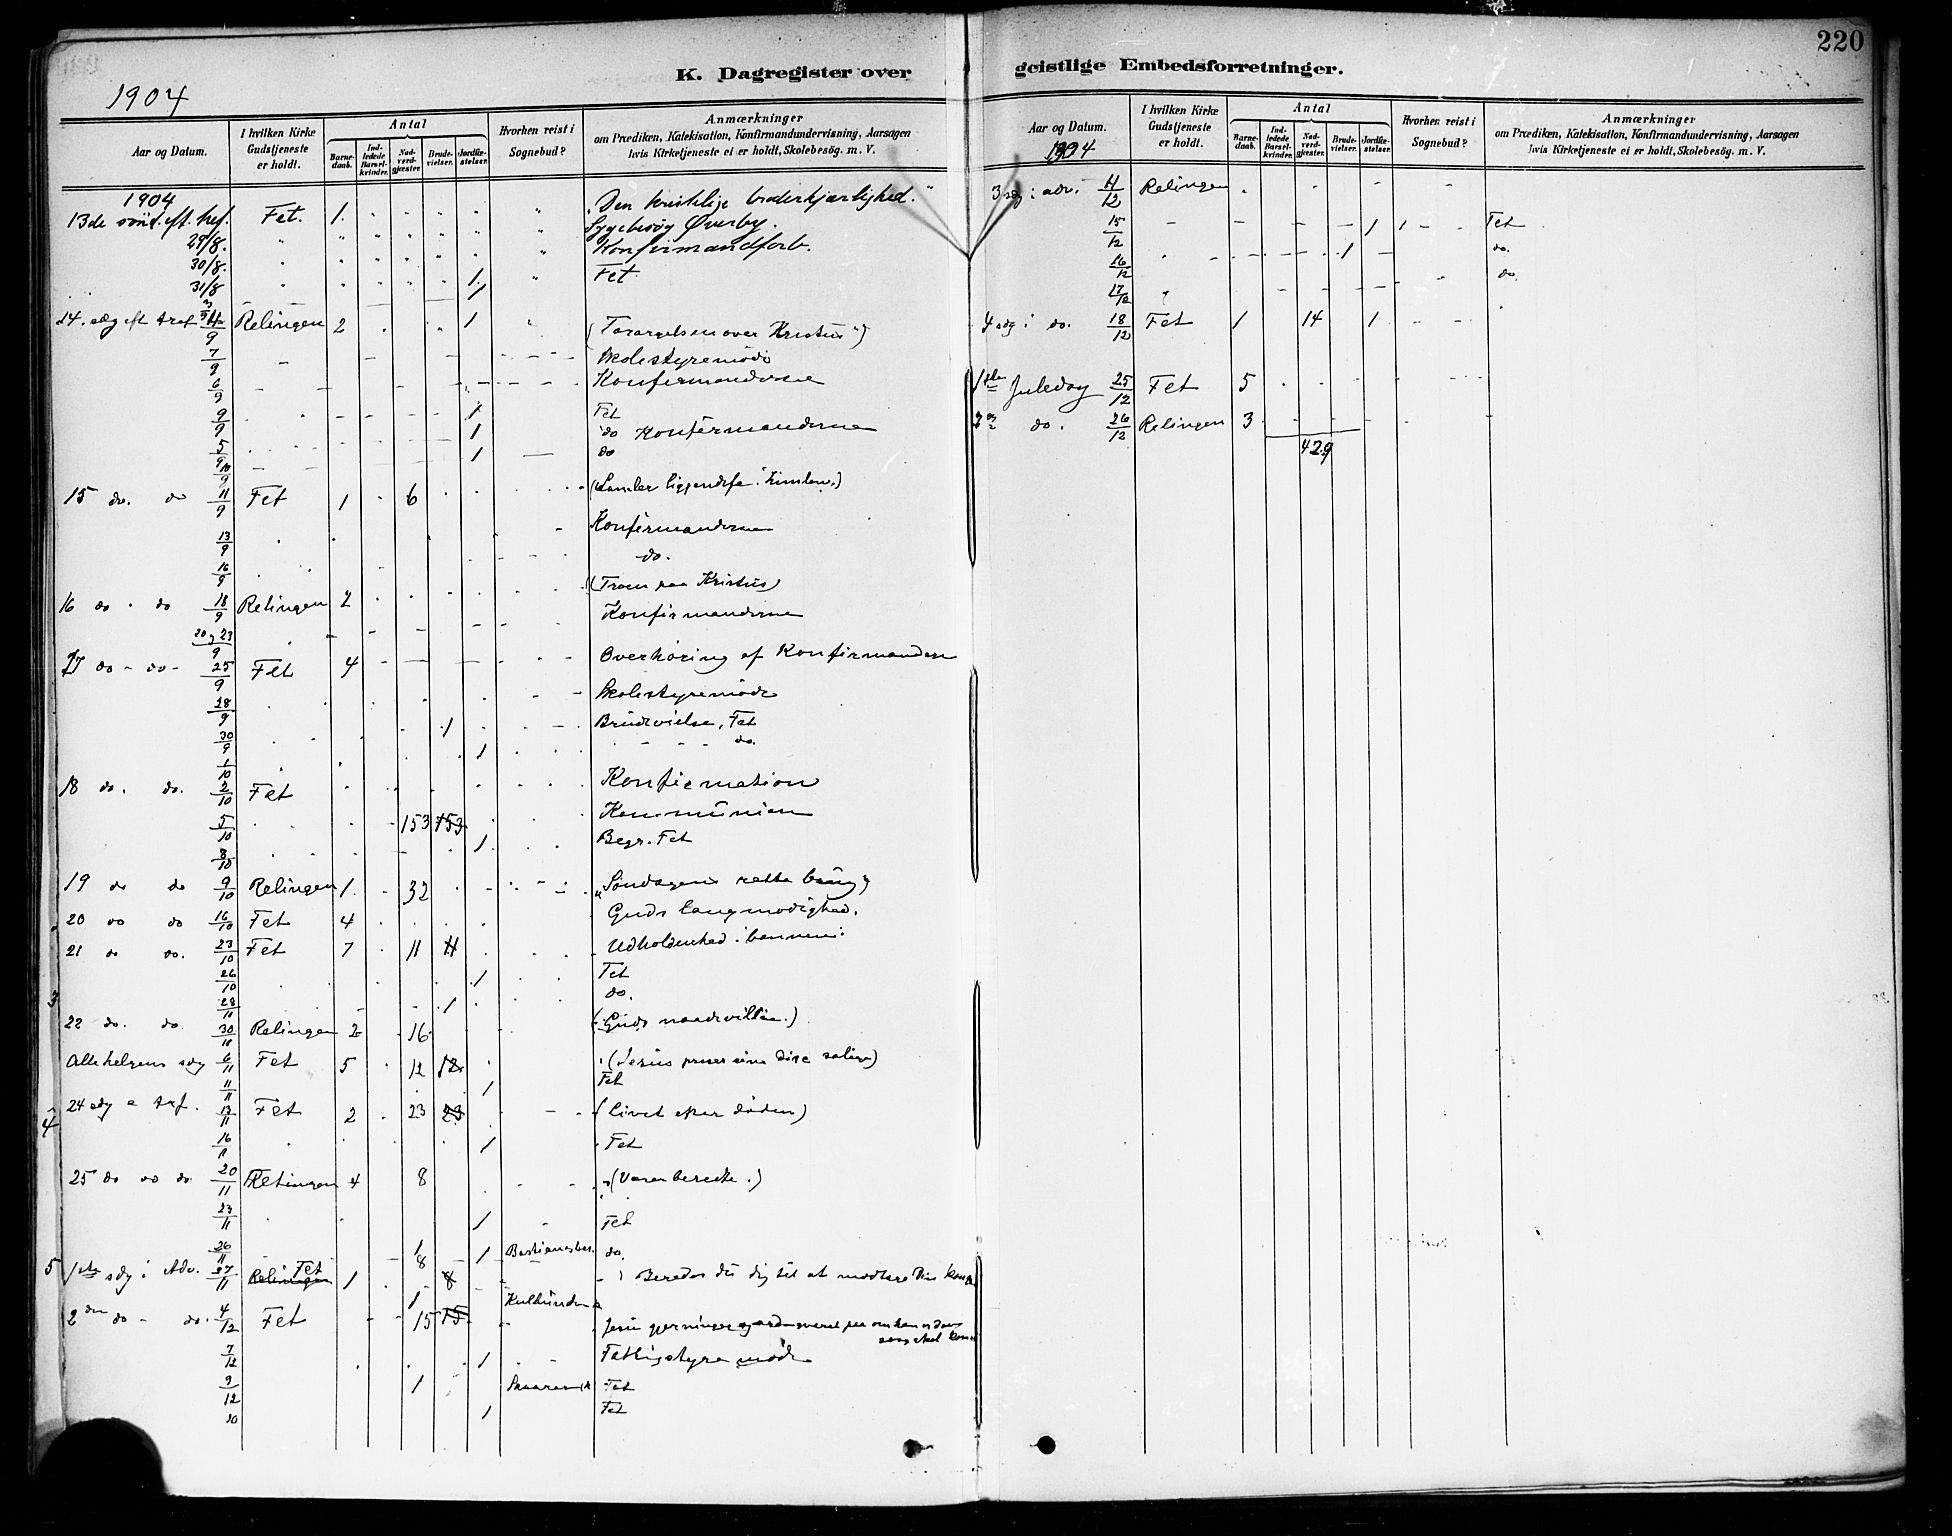 220
K. Dagregister over geistlige Embedsforretninger.
1904
Aar og Datum. | I hvilken Kirke Gudstjeneste er holdt. | Antal | Barne-daab. | Ind-ledede Barsel-kvinder. | Nad-verd-gjæster. | Brude-vielser. | Jordfæ-stelser. | Hvorhen reist i Sognebud? | Anmærkninger om Prædiken, Katekisation, Konfirmandundervisning, Aarsagen hvis Kirketjeneste ei er holdt, Skolebesög. m. V.
1904
13de sönd. eft. tref. Fet. 1. „Den kristelige broderkjærlighed."
29/8. Sygebesög Överby.
30/8. Konfirmandforb.
31/8 1. Fet
14. sdg eft tref 4/9 Relingen 2 1 (Forargelsen over Kristus")
7/9 Skolestyremöde
6/9 Konfirmanderne
9/9 1 Fet
5/9 1 do Konfirmanderne
10/9 1 do
15 do. do 11/9 Fet 1 6
13/9 Konfirmanderne
16/9 do.
16 do. do 18/9 Relingen 2 (Troen paa Kristus)
20 og 23/9 Konfirmanderne
17 do - do - 25/9 Fet 4 Overhöring af Konfirmanderne
28/9 Skolestyremöde
30/9 1 Brudevielse, Fet
1/10 1 do.
18 do. do. 2/10 Fet Konfirmation
5/10 153 153 Kommunion
8/10 1 Begr. Fet
19 do do 9/10 Relingen 1. 32 „Söndagens rette brug"
20 do do 16/10 Fet 4 Guds langmodighed.
21 do do. 23/10 Fet 7 11 11 Udholdenhed i bönnen
26/10 1 Fet
3 28/11 1 do.
22 do. do. 30/10 Relingen 2 16 (Guds naadevillie.)
Allehelgens sdg 6/11 Fet 5 12 12 (Jesus priser sine dise salige)
11/11 1 Fet
4 24 sdg e tref. 13/11 Fet 2 23 23 (Livet efter döden)
16/11 1 Fet
25 do do do 20/11 Relingen 4 8 (Væren berede.)
23/11 1 Fet
26/11 1 1 do.
5 1ste sdg i Adv. 27/11 Relingen Fet 1 8 8 Bereder du dig til at modtage Din
1
2den do - do. 4/12 Fet 15 15 Jesu gjerninger
7/12 1 Fattigstyremöde
9/12 1 Fet
10 1 Fet
Aar og Datum. | I hvilken Kirke Gudstjeneste er holdt. | Antal | Barne-daab. | Ind-ledede Barsel-kvinder. | Nad-verd-gjæster. | Brude-vielser. | Jordfæ-stelser. | Hvorhen reist i Sognebud? | Anmærkninger om Prædiken, Katekisation, Konfirmandundervisning, Aarsagen hvis Kirketjeneste ei er holdt, Skolebesög. m. V.
1904
3 sdg i adv. 11/12 Relingen
15/12 1 1 Fet
16/12 1 do.
17/12 do
4 sdg i do. 18/12 Fet 1 14 1
1ste Juledag 25/12 Fet 5
2den do. 26/12 Relingen 3
429